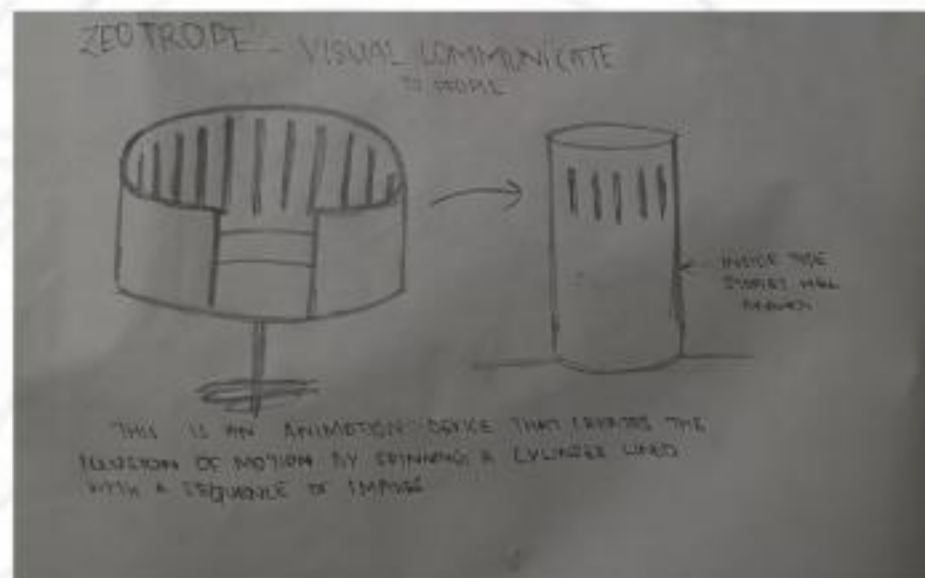 ZEOTROPE - VISUAL COMMUNICATE
TO PEOPLE
INSIDE THE
THIS IS AN ANIMATION DEVICE THAT CREATES THE
ILLUSION OF MOTION BY SPINNING A CYLINDER LINED
WITH A SEQUENCE OF IMAGES